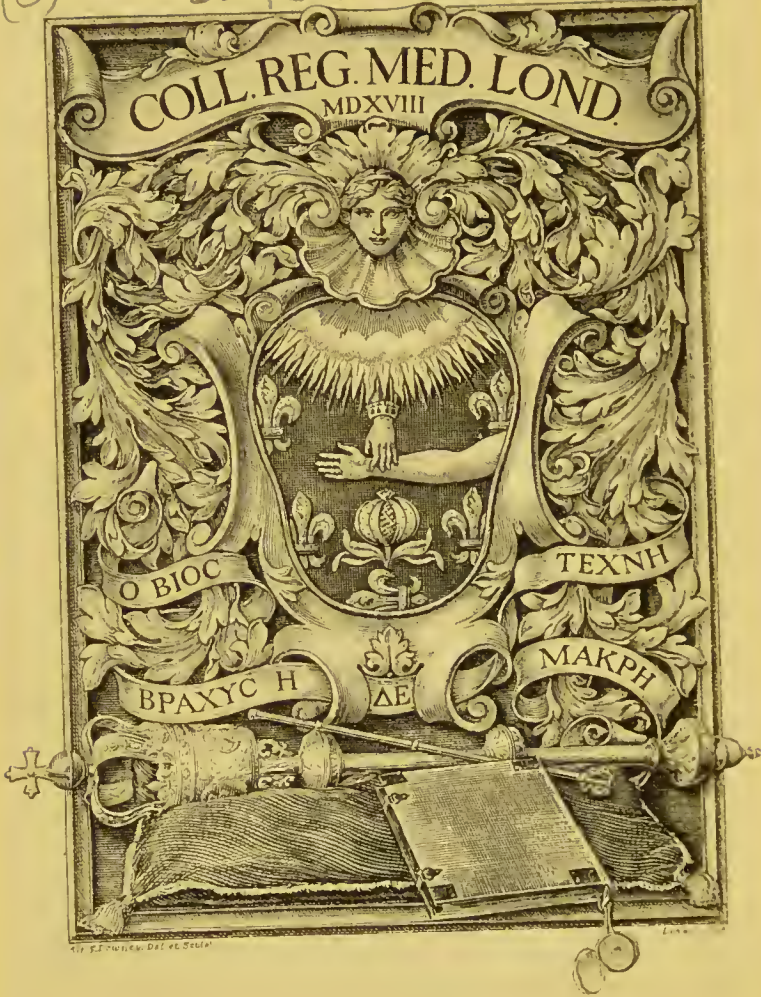 COLL. REG. MED. LOND.
MDXVIII
Ο ΒΙΟC
ΤΕΧΝΗ
ΒΡΑΧΥC Η
ΔΕ
ΜΑΚΡΗ
Del et Sculp